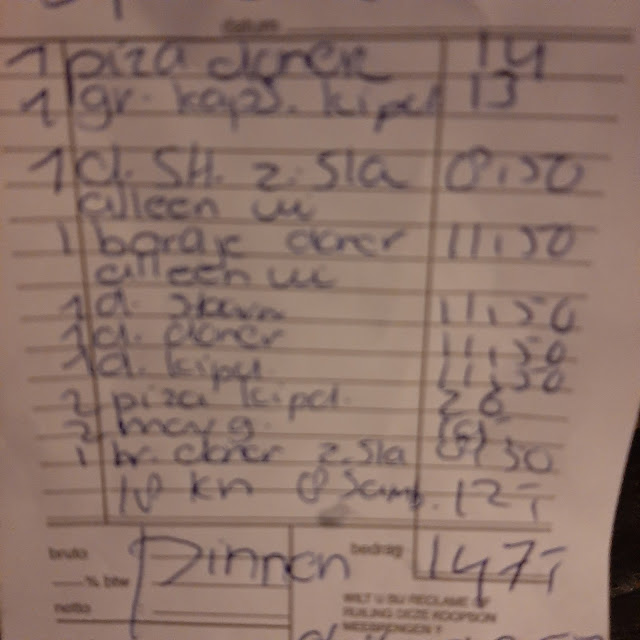 1 piza doner 14
1 gr. kaps. kipel 13
1 d. SH. z. Sla 8,50
alleen
1 bordje doner 11,50
alleen
1 d. 11,50
1 d. doner 11,50
1 d. kipel. 11,50
2 piza kipel. 26
2 marg.
1 br doner z. Sla 50
10 kn 8 12,-
bruto pinnen bedrag 147,-
% btw
netto
WILT U BIJ RECLAME OF
RUILING DEZE KOOPBON
MEEBRENGEN ?